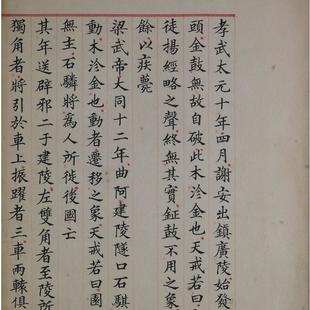 孝武太元十年四月謝安出鎮廣陵始發
頭金鼓無故自破此木沴金也天戒若曰
徒揚經略之聲終無其實鉦鼓不用之象
餘以疾薨
梁武帝大同十二年曲阿建陵隧口石騏
動木沴金也動者遷移之象天戒若曰園
無主石麟將為人所徙後國亡
其年送辟邪二于建陵左雙角者至陵所
獨角者將引於車上振躍者三車兩轅俱